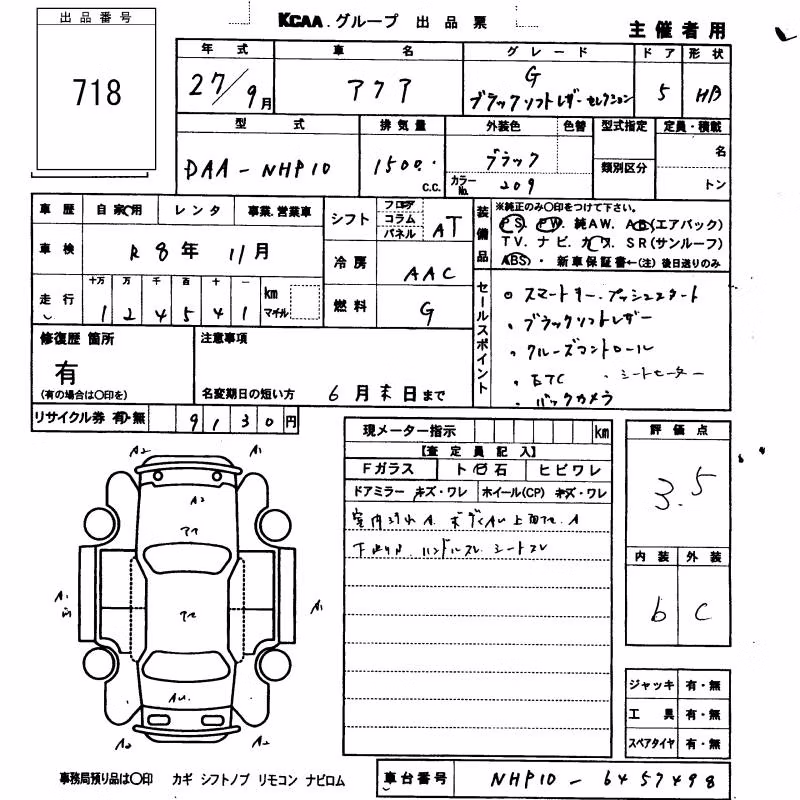 出品番号
718
KCAA.グループ 出品票
主催者用
年式 車名 グレード ドア 形状
27/9月 アクア G ブラックソフトレザーセレクション 5 HB
型式 排気量 外装色 色替 型式指定 定員・積載
DAA-NHP10 1500 c.c. ブラック カラーNo. 209 類別区分 名 トン
車歴 自家用 レンタ 事業.営業車
車検 R8年 11月
走行 十万 万 千 百 十 一 km マイル
1 2 4 5 4 1
シフト フロア コラム パネル AT
冷房 AAC
燃料 G
装備品 ※純正のみ〇印をつけて下さい。
PS. PW. 純AW. AB(エアバック)
TV. ナビ. カワ. SR(サンルーフ)
ABS・ 新車保証書←(注)後日送りのみ
セールスポイント
スマートキー.プッシュスタート
・ブラックソフトレザー
・クルーズコントロール
・ETC ・シートヒーター
・バックカメラ
修復歴 箇所 注意事項
有
(有の場合は〇印を) 名変期日の短い方 6月末日まで
リサイクル券 有・無 9130円
現メーター指示 km
【査定員記入】
Fガラス ト 石 ヒビワレ
ドアミラー キズ・ワレ ホイール(CP) キズ・ワレ
評価点
3.5
内装 外装
b C
A2 A1
A2
A1 A1
AU
A2 A2
ジャッキ 有・無
工具 有・無
スペアタイヤ 有・無
事務局預り品は〇印 カギ シフトノブ リモコン ナビロム
車台番号 NHP10-6457498